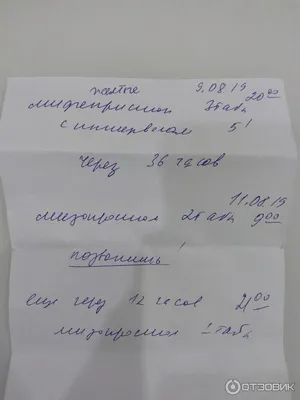 желтые 9.08.19
мифепристон 3табл 20 00
с интервалом 5'
через 36 часов
11.08.19
мизопростол 2табл 9 00
позвонить!
еще через 12 часов 21 00
мизопростол 1 табл
ОТЗОВИК